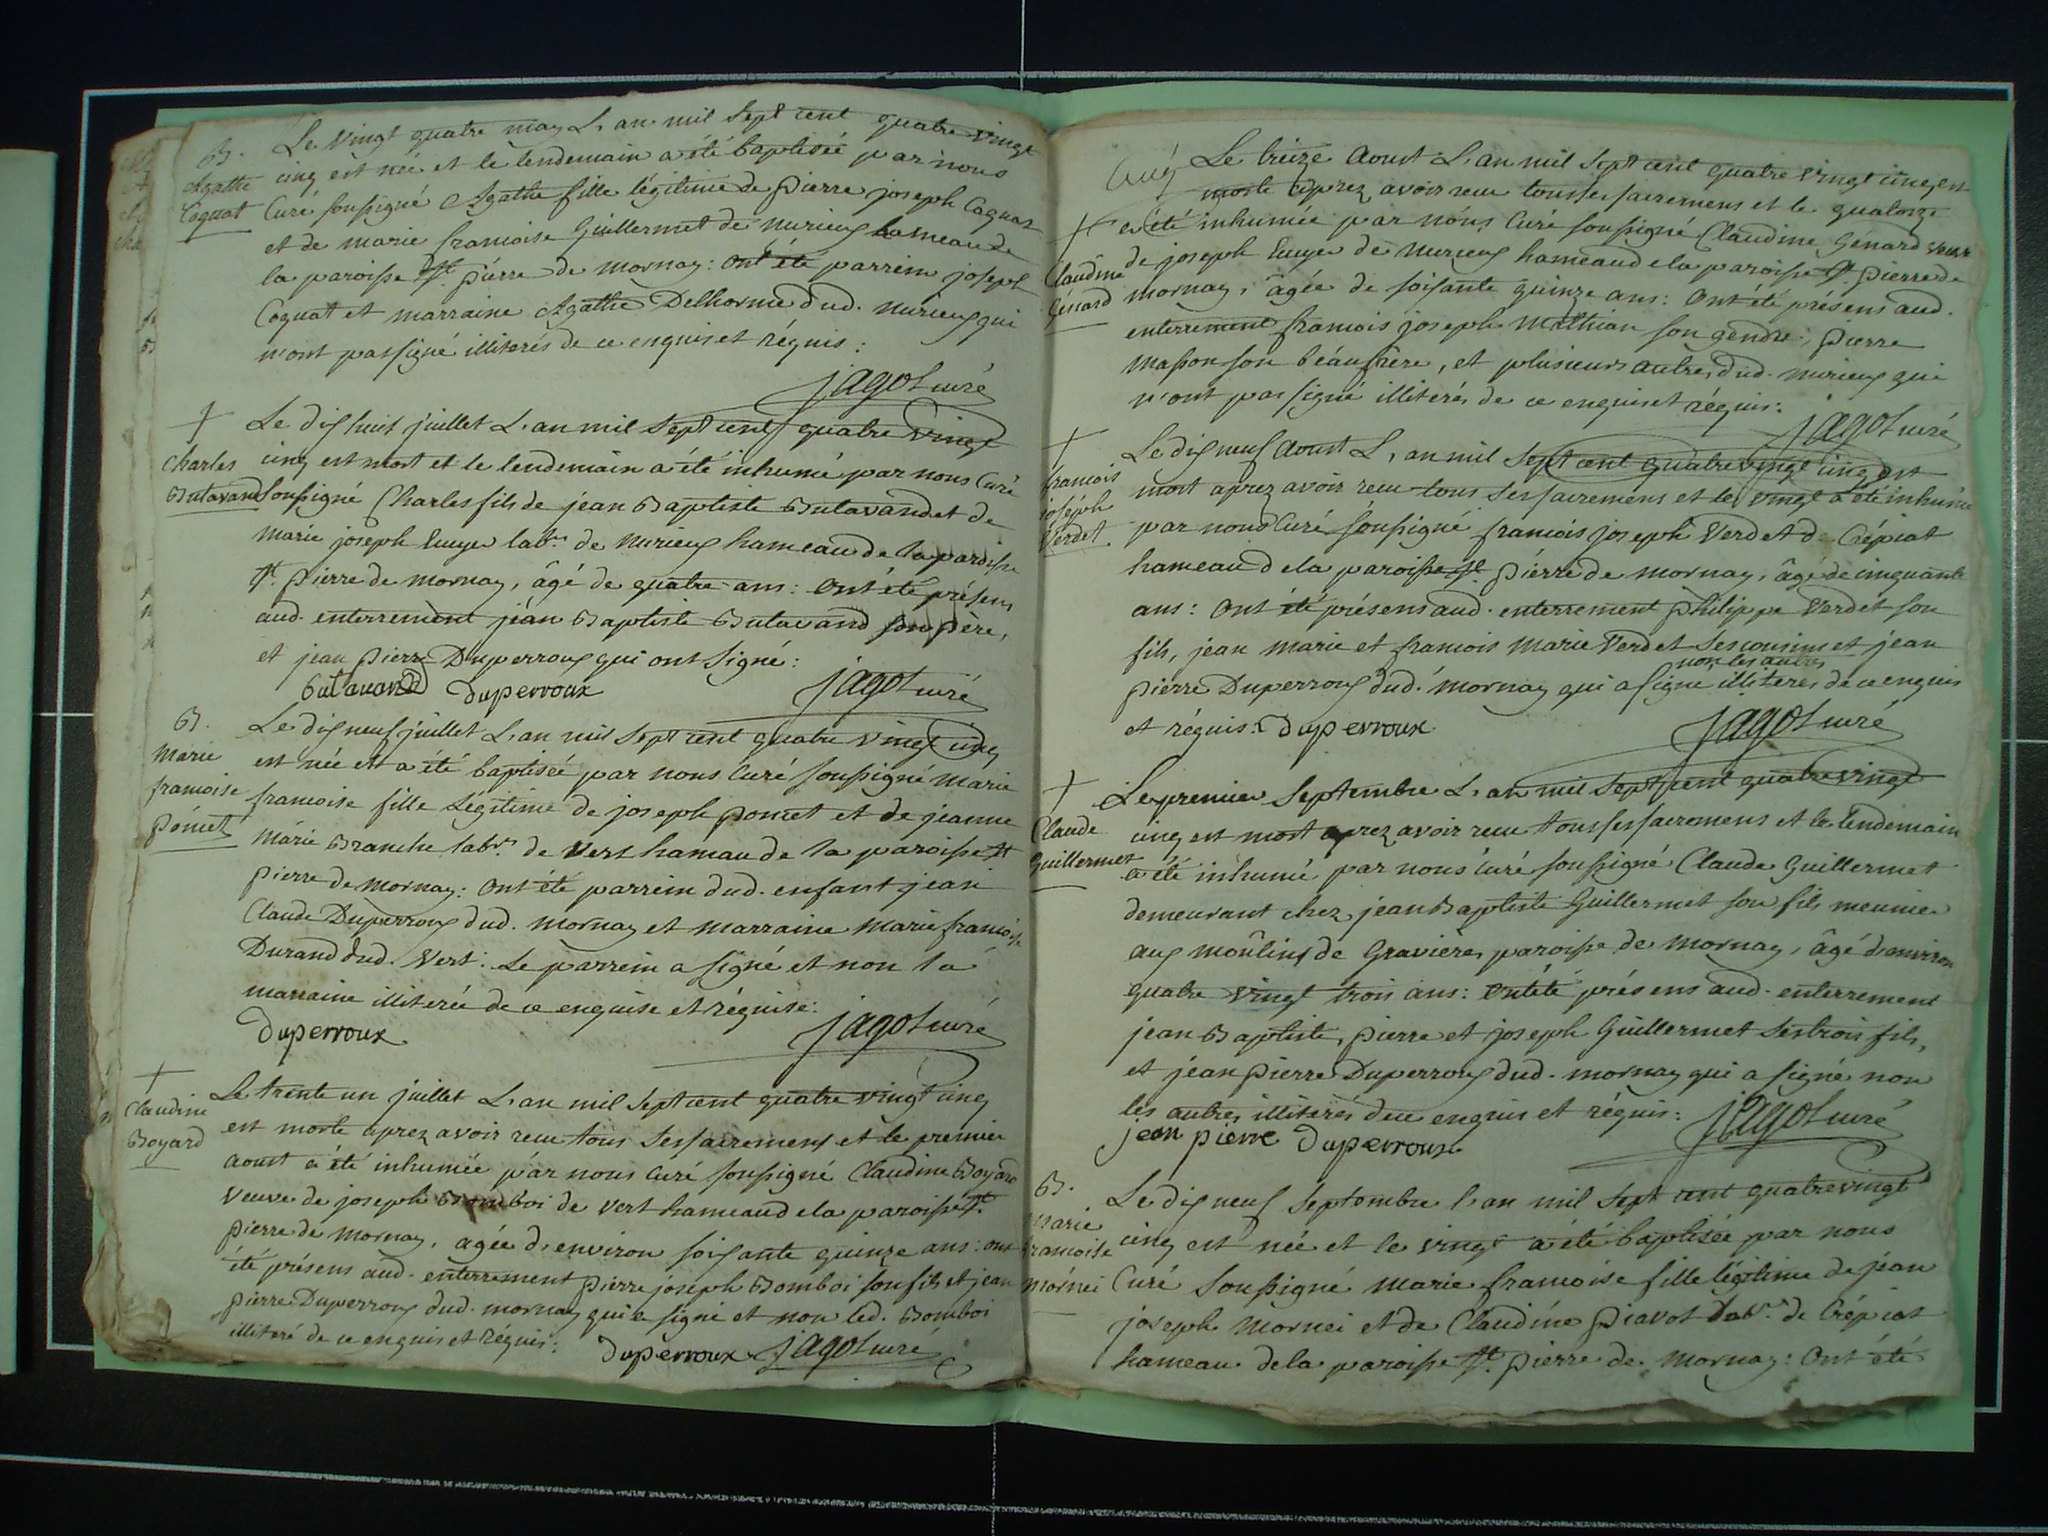 B.
Agathe
Coquat
Le vingt quatre may L'an mil sept cent quatre vingt
cinq est née et le lendemain a été baptisée par nous
Curé soussigné Agathe fille légitime de pierre joseph Coquat
et de marie francoise Guillermet de nurieux hameau de
la paroisse St. pierre de mornay: ont été parrein joseph
Coquat et marraine Agathe Delhorme dud. nurieux qui
n'ont pas signé illiterés de ce enquis et réquis:
jagot curé
†
Charles
Butavand
Le dix huit juillet L'an mil sept cent quatre vingt
cinq est mort et le lendemain a été inhumé par nous Curé
soussigné Charles fils de jean Baptiste Butavand et de
marie joseph Cuyer labrs. de nurieux hameau de la paroisse
St. pierre de mornay, âgé de quatre ans: ont été présens
aud. enterrement jean Baptiste Butavand son père,
et jean pierre Duperroux qui ont signé:
butavand duperroux jagot curé
B.
marie
francoise
poncet
Le dix neuf juillet L'an mil sept cent quatre vingt cinq
est née et a été baptisée par nous Curé soussigné marie
francoise fille légitime de joseph poncet et de jeanne
marie Branche labrs. de vers hameau de la paroisse St
pierre de mornay: ont été parrein dud. enfant jean
Claude Duperroux dud. mornay et marraine marie francoise
Durand dud. vert. Le parrein a signé et non la
marraine illiterée de ce enquise et réquise:
duperroux jagot curé
†
Claudine
Boyard
Le trente un juillet L'an mil sept cent quatre vingt cinq
est morte aprez avoir recu tous ses sacremens et le premier
aoust a été inhumée par nous Curé soussigné Claudine Boyard
veuve de joseph Bomboi de vert hameau de la paroisse St.
pierre de mornay, agée d'environ soisante quinze ans: ont
été présens aud. enterrement pierre joseph Bomboi son fils et jean
pierre Duperroux dud. mornay qui a signé et non led. Bomboi
illiteré de ce enquis et réquis:
duperroux jagot curé
†
Claudine
Genard
Le treize Aoust L'an mil sept cent quatre vingt cinq est
morte aprez avoir recu tous ses sacremens et le quatorze
a été inhumée par nous Curé soussigné Claudine Génard veuve
de joseph Cuyer de nurieux hameau de la paroisse St. pierre de
mornay, âgée de soisante quinze ans: ont été présens aud.
enterrement francois joseph Mathian son gendre, pierre
masson son beaufrere, et plusieurs autres dud. nurieux qui
n'ont pas signé illiterés de ce enquis et réquis:
jagot curé
†
francois
joseph
verdet
Le dix neuf Aoust L'an mil sept cent quatre vingt cinq est
mort aprez avoir recu tous ses sacremens et le vingt a été inhumé
par nous Curé soussigné francois joseph Verdet de Crépiat
hameau de la paroisse St. pierre de mornay, âgé de cinquante
ans: ont été présens aud. enterrement philippe Verdet son
fils, jean marie et francois marie Verdet ses cousins et jean
non les autres
pierre Duperroux dud. mornay qui a signé illiterés de ce enquis
et réquis: duperroux jagot curé
†
Claude
Guillermet
Le premier septembre L'an mil sept cent quatre vingt
cinq est mort aprez avoir recu tous ses sacremens et le lendemain
a été inhumé par nous Curé soussigné Claude Guillermet
demeurant chez jean Baptiste Guillermet son fils meunier
aux moûlins de Gravières paroisse de mornay, âgé d'environ
quatre vingt trois ans: ont été présens aud. enterrement
jean Baptiste, pierre et joseph Guillermet ses trois fils,
et jean pierre Duperroux dud. mornay qui a signé non
les autres illiterés de ce enquis et réquis: jagot curé
jean pierre duperroux
B.
marie
francoise
mornei
Le dix neuf septembre l'an mil sept cent quatre vingt
cinq est née et le vingt a été baptisée par nous
Curé soussigné marie francoise fille légitime de jean
joseph mornei et de Claudine piavot labrs. de Crépiat
hameau de la paroisse St. pierre de mornay: ont été